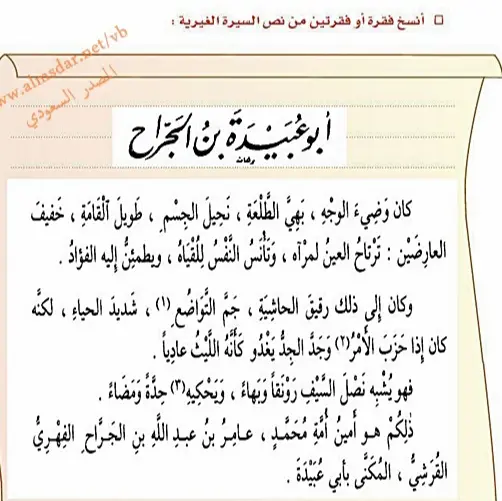 □ أنسخ فقرة أو فقرتين من نص السيرة الغيرية :
www.aliasdar.net/vb
المصدر السعودي
أبو عُبَيْدَةَ بنُ الجَرَّاح
كان وَضِيءَ الوجْهِ ، بَهِيَّ الطَّلْعَةِ ، نَحِيلَ الجِسْمِ ، طَوِيلَ الْقَامَةِ ، خَفيفَ
العارِضَيْن : تَرْتَاحُ العينُ لمرآه ، وَتَأْنَسُ النَّفْسُ لِلُقْيَاهُ ، ويطمئِنُّ إليه الفؤادُ .
وكان إلى ذلك رقيقَ الحاشيَةِ ، جَمَّ التَّوَاضُعِ (١) ، شَديدَ الحياءِ ، لكنَّه
كان إذا حَزَبَ الأَمْرُ (٢) وَجَدَّ الجِدُّ يَغْدُو كَأَنَّهُ اللَّيْثُ عادِياً .
فهو يُشْبِه نَصْلَ السَّيْفِ رَوْنَقاً وَبَهاءً ، وَيَحْكِيهِ (٣) حِدَّةً وَمَضَاءً .
ذٰلِكُمْ هو أَمينُ أُمَّةِ مُحَمَّدٍ ، عامِرُ بنُ عبدِ اللَّهِ بنِ الجَرَّاحِ الفِهْرِيُّ
القُرَشِيُّ ، المُكَنَّى بأبي عُبَيْدَةَ .